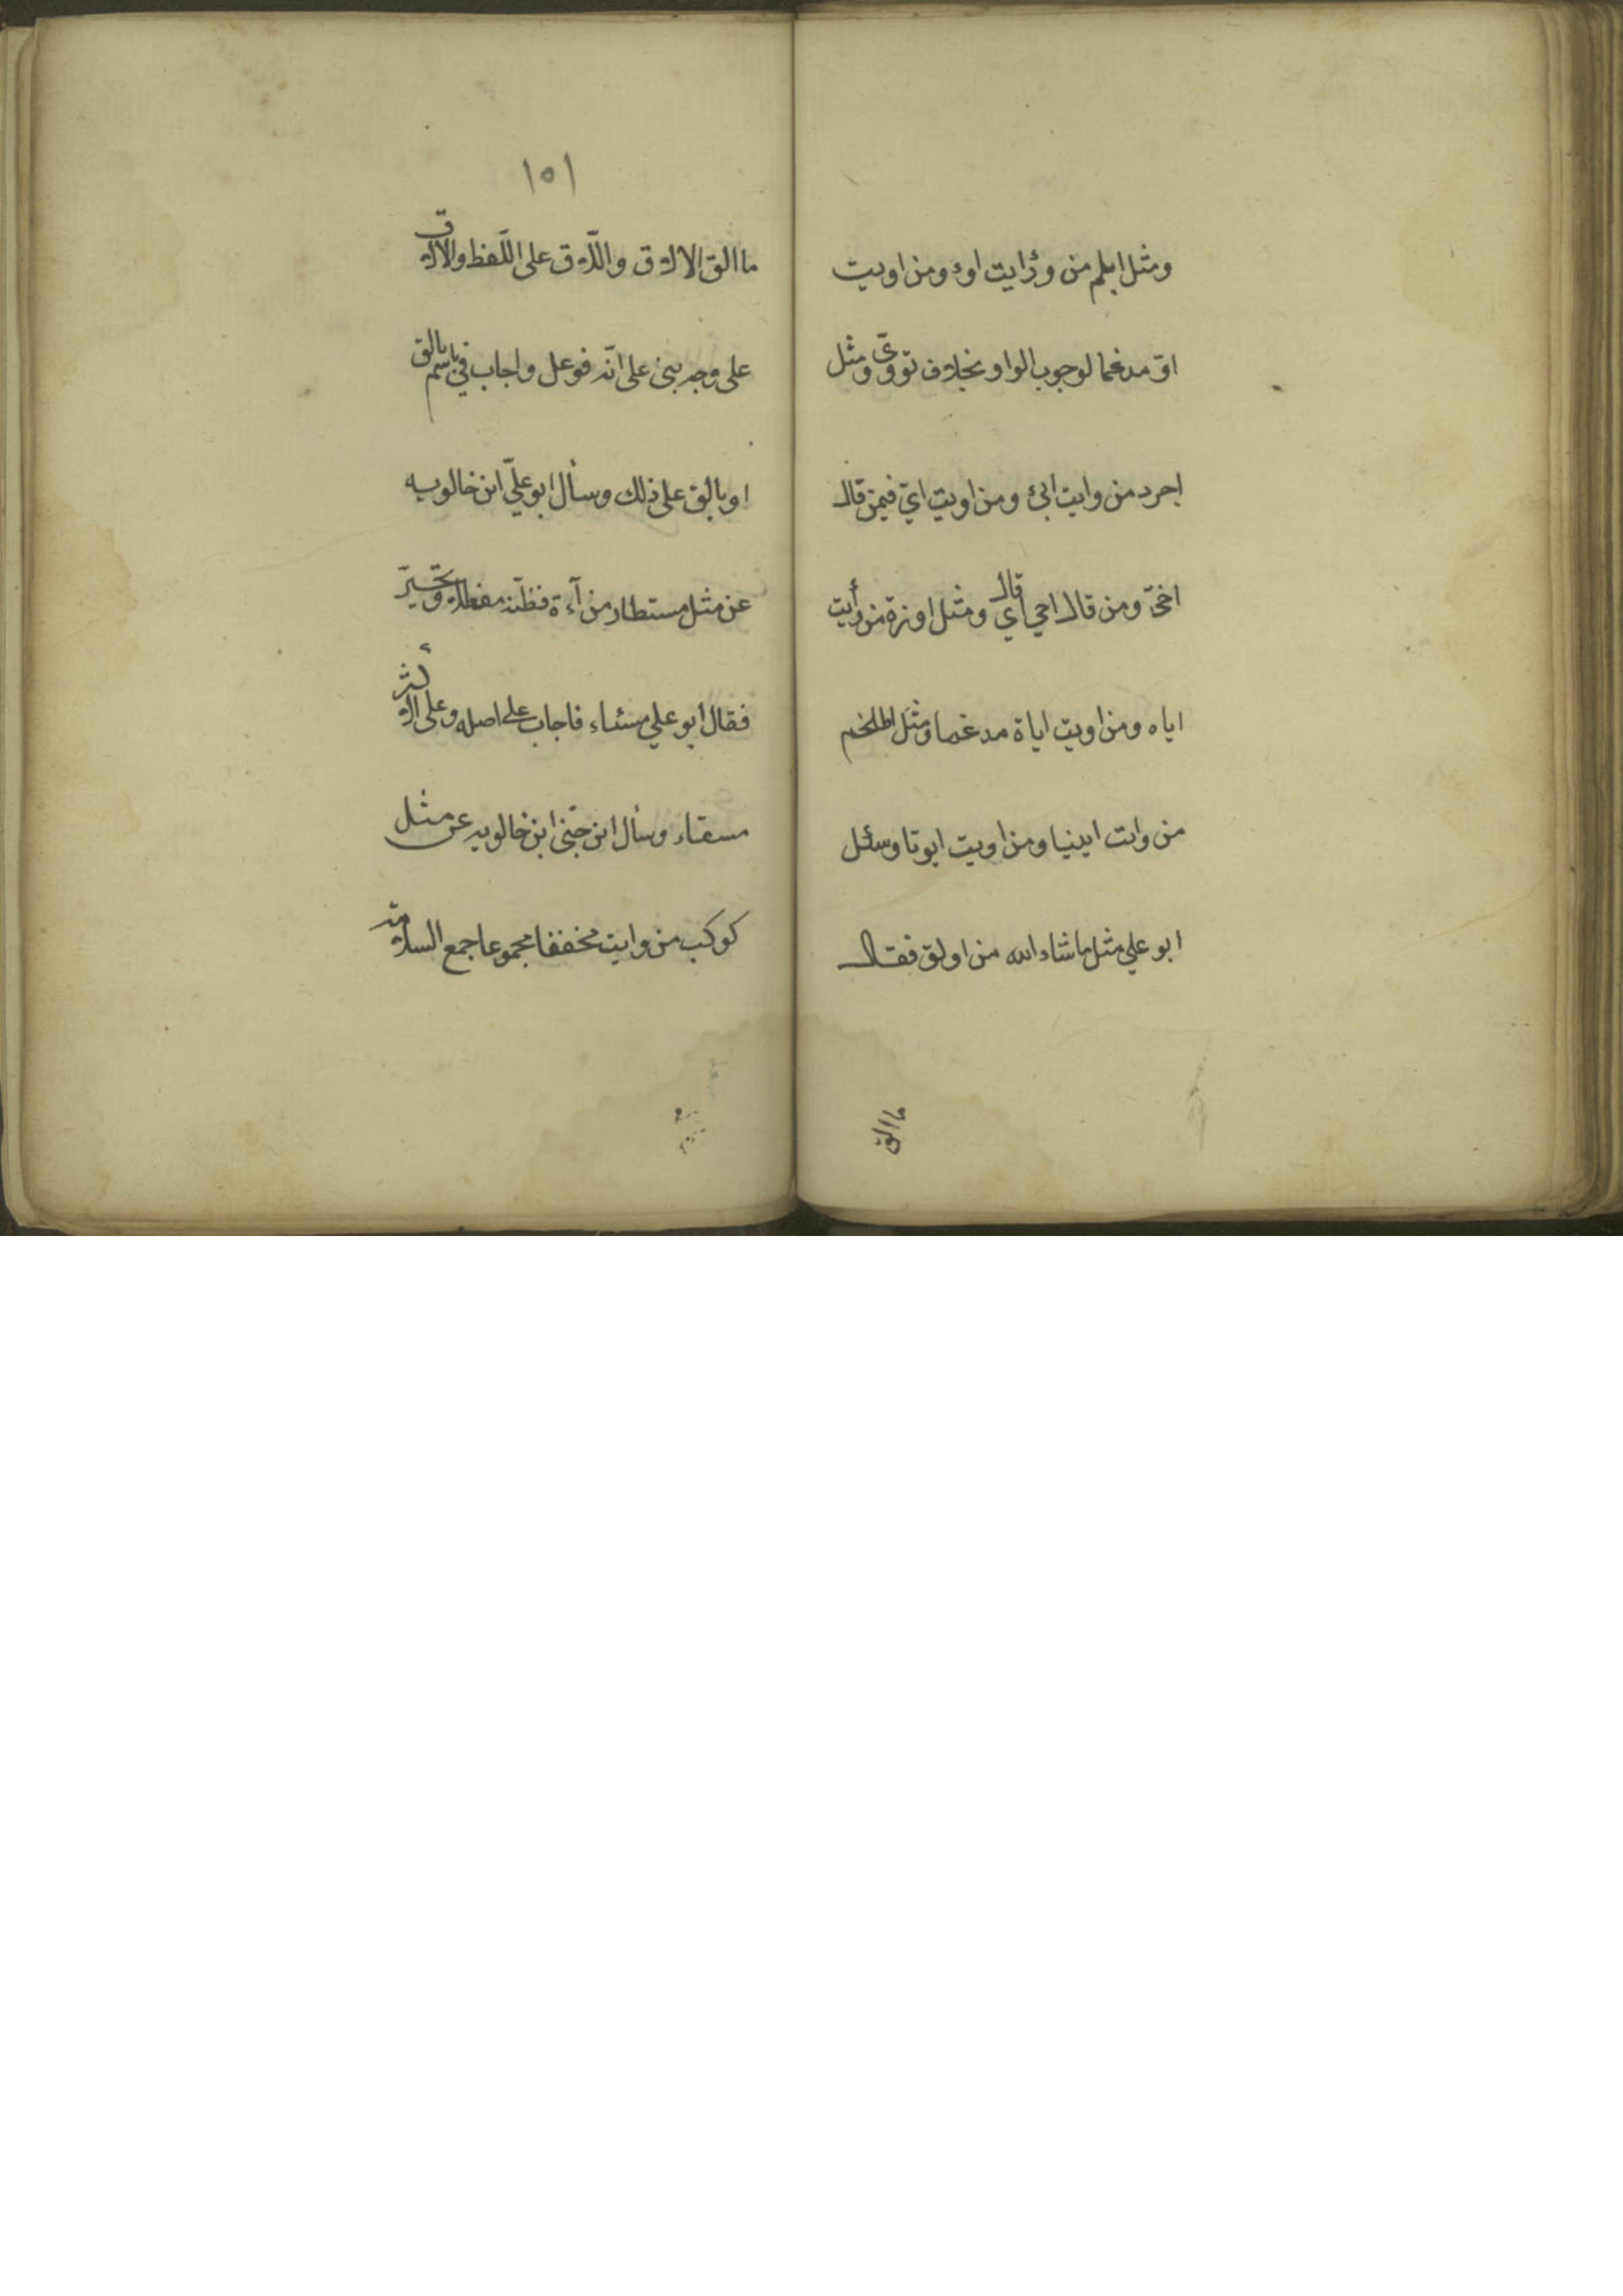 ومثل ابلم من وأرايت اوء ومن اويت
اوّ مدغما لوجوب الواو بخلاف تووي ومثل
اجرد من وايت ايئ ومن اويت ايّ فيمن قال
احيّ ومن قال احي قال اي ومثل اوزة من وأيت
اياه ومن اويت اياة مدغما ومثل اطلخم
من وايت ايئيا ومن اويت ايويا وسئل
ابو علي مثل ما شاء الله من اولق فقال
ما الق
١٥١
ما الق الالاق واللّاق على اللّفظ والالق
على وجه بنى على انّه فوعل واجاب في باسم بالق
او بالق على ذلك وسأل ابو عليّ ابن خالويه
عن مثل مسطار من آءة فظنّه مفعالا وتحيّر
فقال ابو علي مسئاء فاجاب على اصله وعلى الاكثر
مستاء وسأل ابن جنّي ابن خالويه عن مثل
كوكب من وايت مخففا مجموعا جمع السلامة